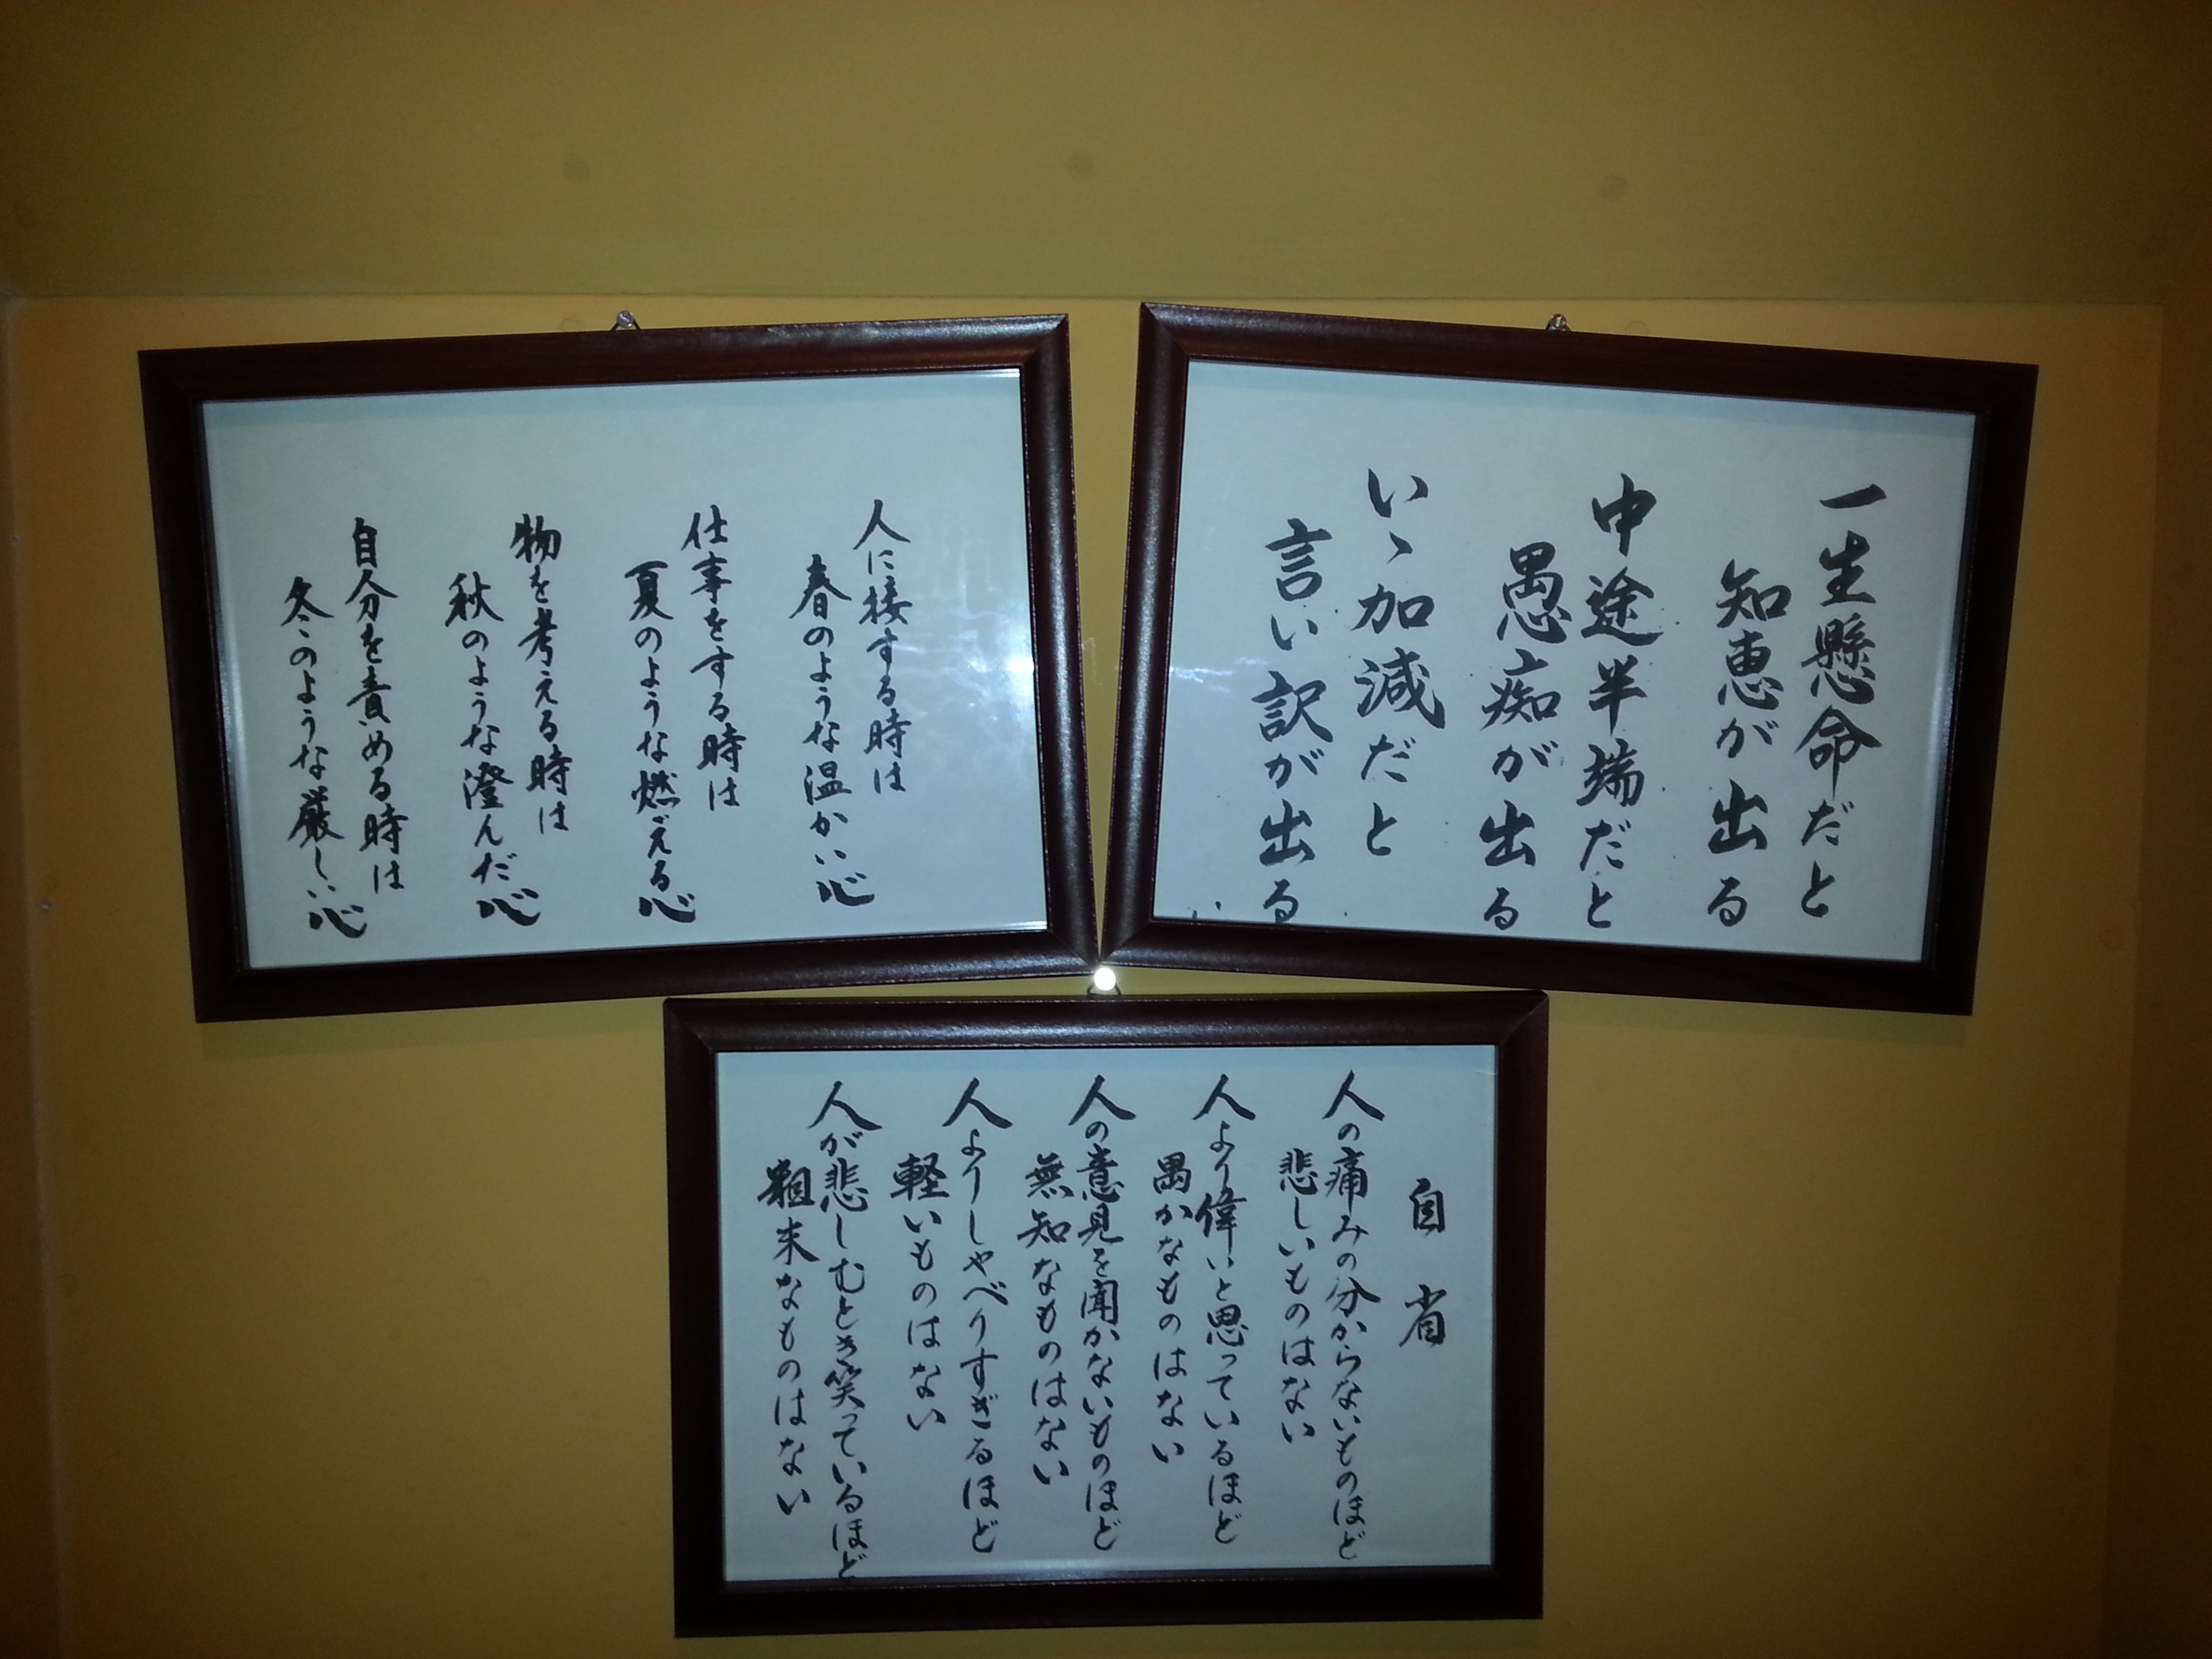 一生懸命だと
知恵が出る
中途半端だと
愚痴が出る
いゝ加減だと
言い訳が出る
人に接する時は
春のような温かい心
仕事をする時は
夏のような燃える心
物を考える時は
秋のような澄んだ心
自分を責める時は
冬のような厳しい心
自省
人の痛みの分からないものほど
悲しいものはない
人より偉いと思っているほど
愚かなものはない
人の意見を聞かないものほど
無知なものはない
人よりしゃべりすぎるほど
軽いものはない
人が悲しむとき笑っているほど
粗末なものはない